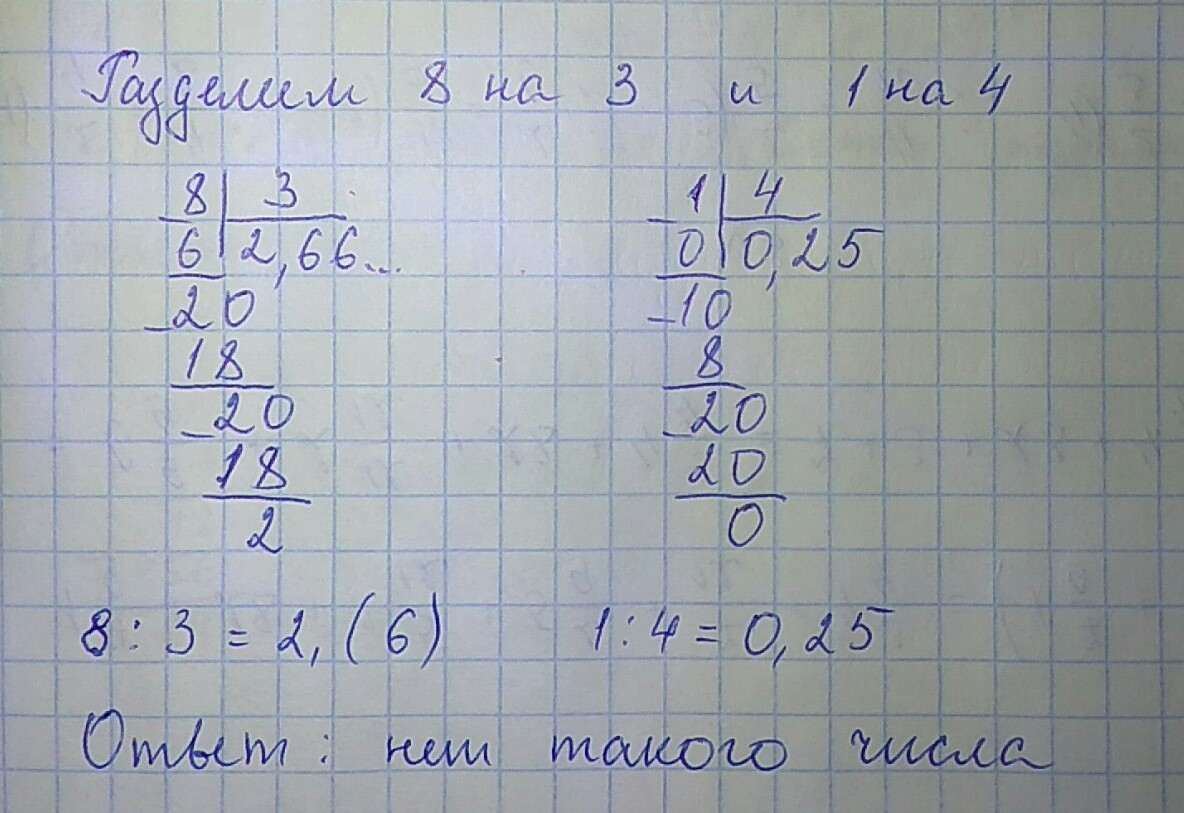 Разделим 8 на 3 и 1 на 4
8 | 3
6 | 2,66...
-20
18
-20
18
2
-1 | 4
0 | 0,25
-10
8
-20
20
0
8 : 3 = 2,(6) 1 : 4 = 0,25
Ответ : нет такого числа